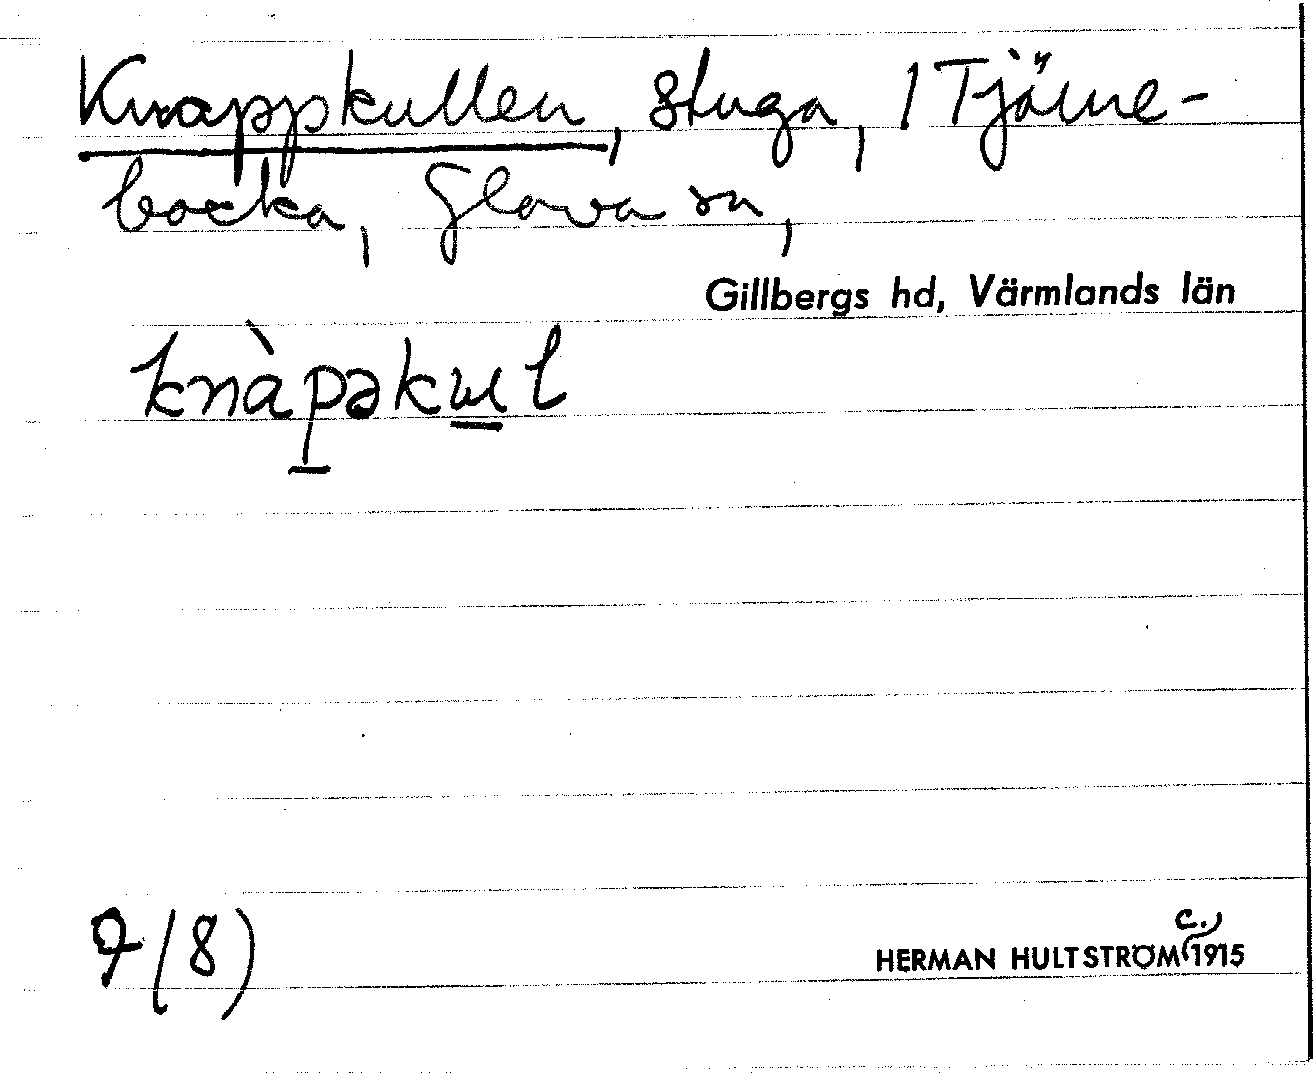 Knappkullen, stuga, / Tjärne-
backa, Glava sn,
Gillbergs hd, Värmlands län
knàpəkuɩl
7 (8)
c.,
HERMAN HULTSTRÖM 1915